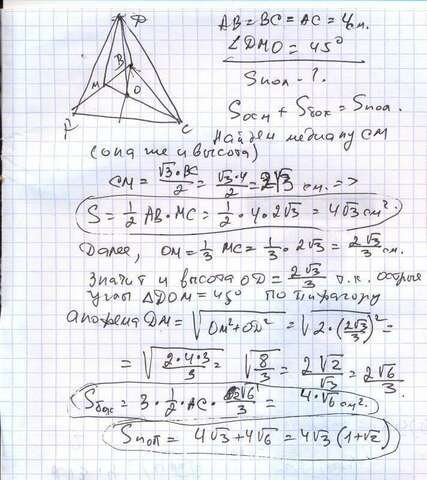 D
B
M
O
C
AB = BC = AC = 4 см.
∠DMO = 45°
Sпол - ?
Sосн + Sбок = Sпол.
Найдем медиану CM
(она же и высота)
CM = √3·BC/2 = √3·4/2 = 2√3 см. =>
S = 1/2 AB · MC = 1/2 · 4 · 2√3 = 4√3 см².
Далее, OM = 1/3 MC = 1/3 · 2√3 = 2√3/3 см.
Значит и высота OD = 2√3/3 т.к. острые
углы ΔDOM = 45° по Пифагору
апофема DM = √(OM² + OD²) = √(2·(2√3/3)²) =
= √(2·4·3/3 = √(8/3) = 2√2/√3 = 2√6/3.
Sбок = 3 · 1/2 · AC · 2√6/3 = 4·√6 см².
Sпол = 4√3 + 4√6 = 4√3 (1+√2)